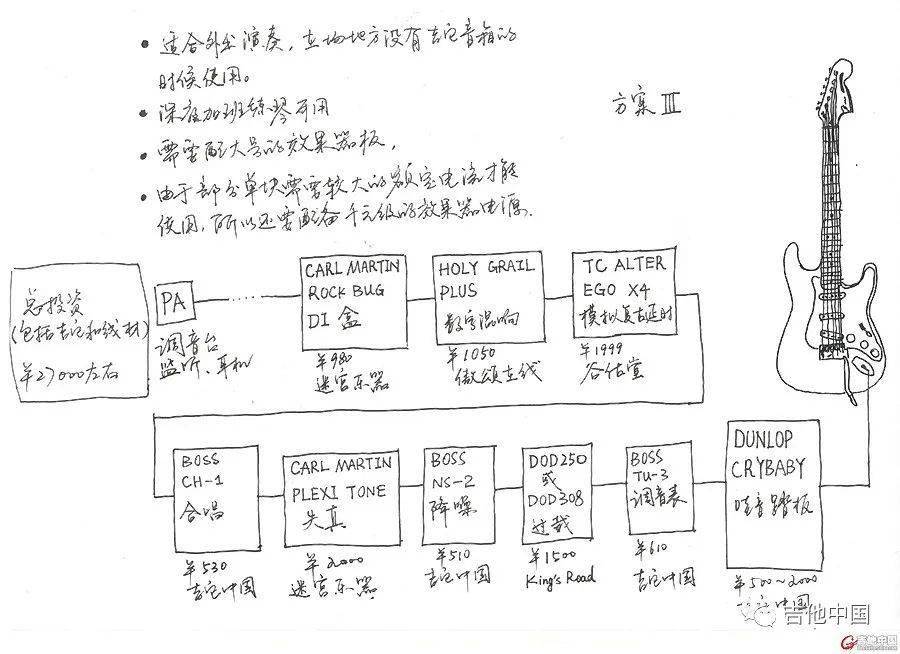 • 适合外出演奏，立场地方没有吉它音箱的
时候使用。
• 深夜加班练琴可用
• 需要配大号的效果器板，
• 由于部分单块需要较大的额定电流才能
使用，所以还要配备千元级的效果器电源.
方案 III
总投资
(包括吉它和线材)
¥27000左右
PA
调音台
监听、耳机
CARL MARTIN
ROCK BUG
DI 盒
¥980
迷宫乐器
HOLY GRAIL
PLUS
数字混响
¥1050
傲颂在线
TC ALTER
EGO X4
模拟复古延时
¥1999
谷佐堂
BOSS
CH-1
合唱
¥530
吉它中国
CARL MARTIN
PLEXI TONE
失真
¥2000
迷宫乐器
BOSS
NS-2
降噪
¥510
吉它中国
DOD250
或
DOD308
过载
¥1500
King's Road
BOSS
TU-3
调音表
¥610
吉它中国
DUNLOP
CRYBABY
哇音踏板
¥500~2000
吉它中国
吉他中国
吉他中国